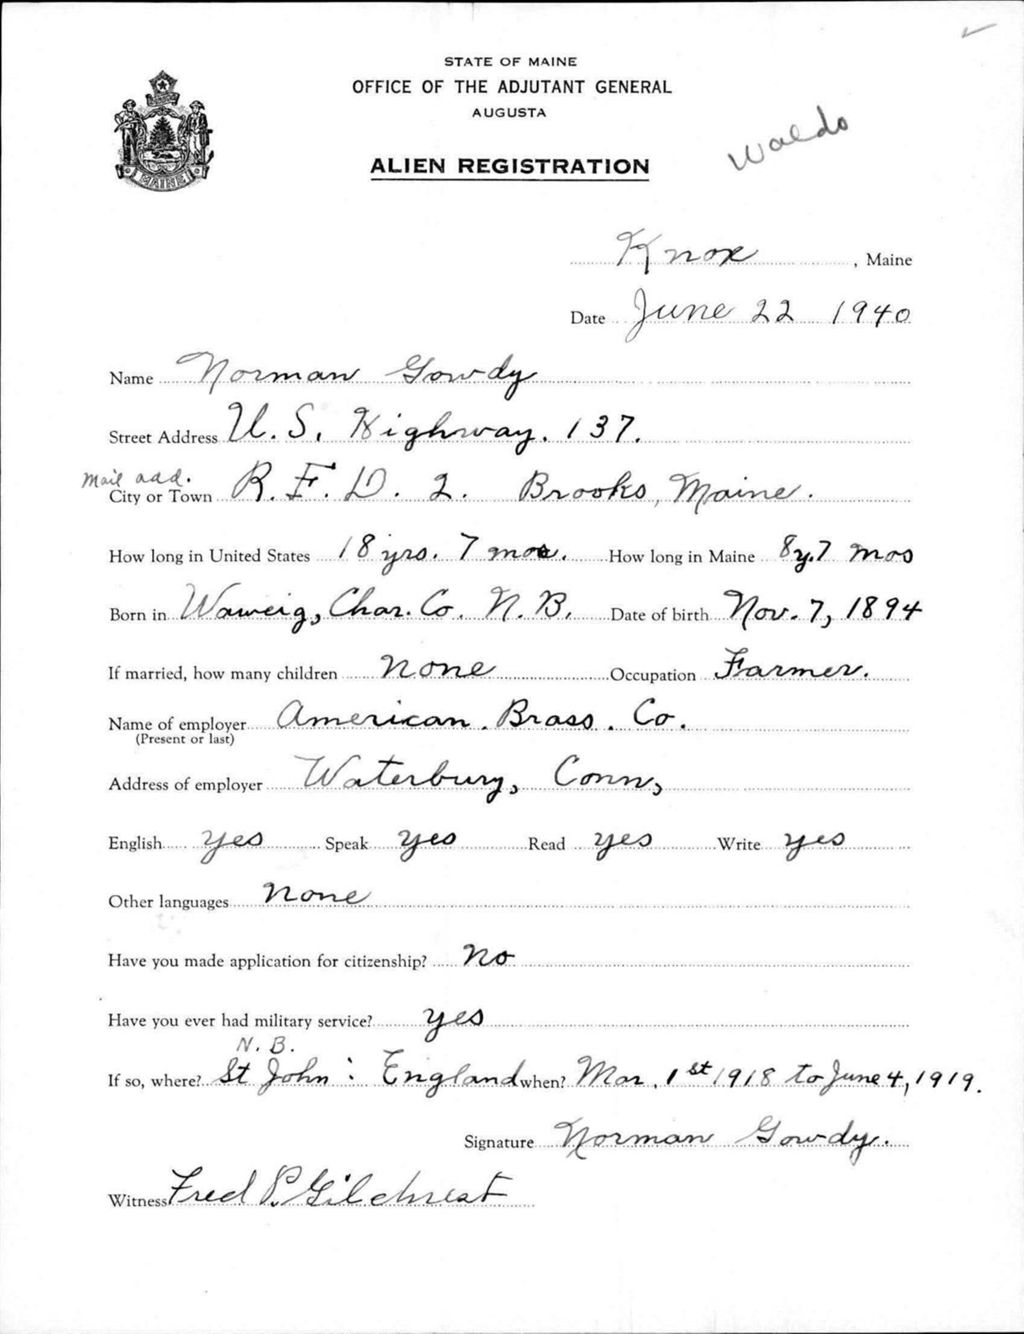 STATE OF MAINE
OFFICE OF THE ADJUTANT GENERAL
AUGUSTA
Waldo
ALIEN REGISTRATION
MAINE
Knox, Maine
Date June 22 1940
Name Norman Gowdy
Street Address U. S. Highway. 137.
mail add.
City or Town R. F. D. 2. Brooks, Maine.
How long in United States 18 yrs. 7 mos. How long in Maine 8 y. 7 mos
Born in Waweig, Char. Co. N. B. Date of birth Nov. 7, 1894
If married, how many children None Occupation Farmer.
Name of employer American Brass Co.
(Present or last)
Address of employer Waterbury, Conn,
English yes Speak yes Read yes Write yes
Other languages None
Have you made application for citizenship? No
Have you ever had military service? yes
N. B.
If so, where? St John : England when? Mar. 1st 1918 to June 4, 1919.
Signature Norman Gowdy.
Witness Fred P. Gilchrest